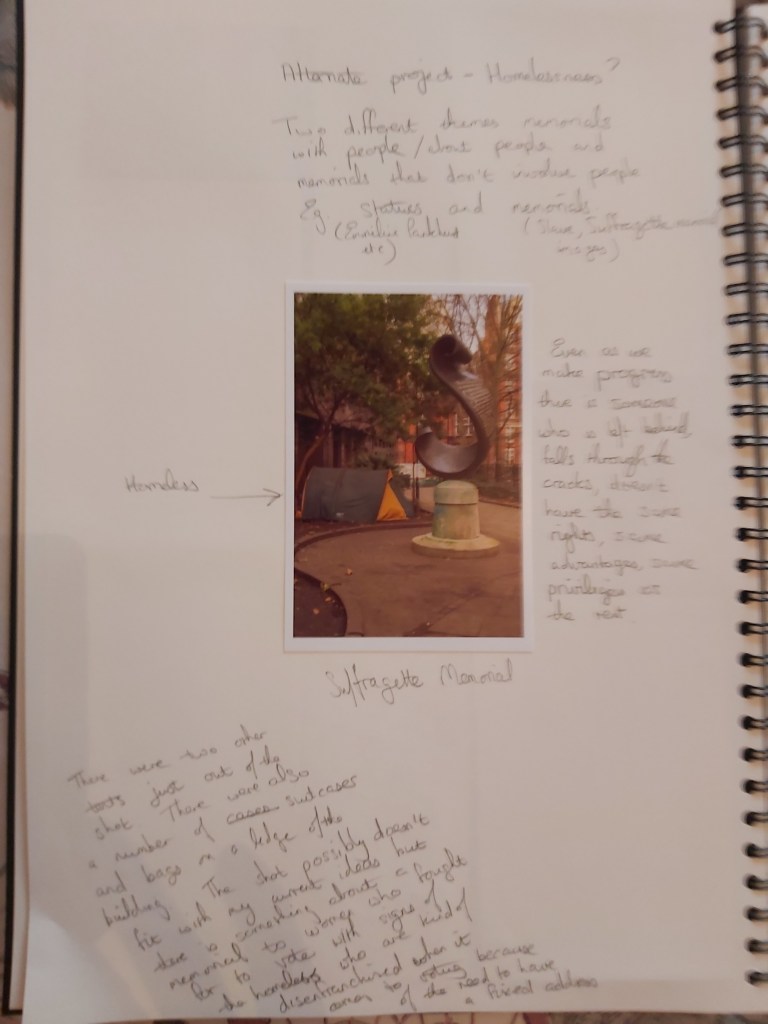 Alternate project - Homelessness?
Two different themes memorials
with people / about people and
memorials that don't involve people
Eg. Statues and memorials
(Emmeline Pankhurst (Slave, Suffragette
etc)
Even as we
make progress
there is someone
who is left behind,
falls through the
cracks, doesn't
have the same
rights, same
advantages, same
privileges as
the rest
Homeless
Suffragette Memorial
There were two other
tents just out of the
shot. There were also
a number of cases suitcases
and bags on a ledge of the
building. The shot possibly doesn't
fit with my current ideas but
there is something about a
memorial to women who fought
for to vote with signs of
the homeless who are kind of
disenfranchised when it
comes to voting because
of the need to have
a fixed address